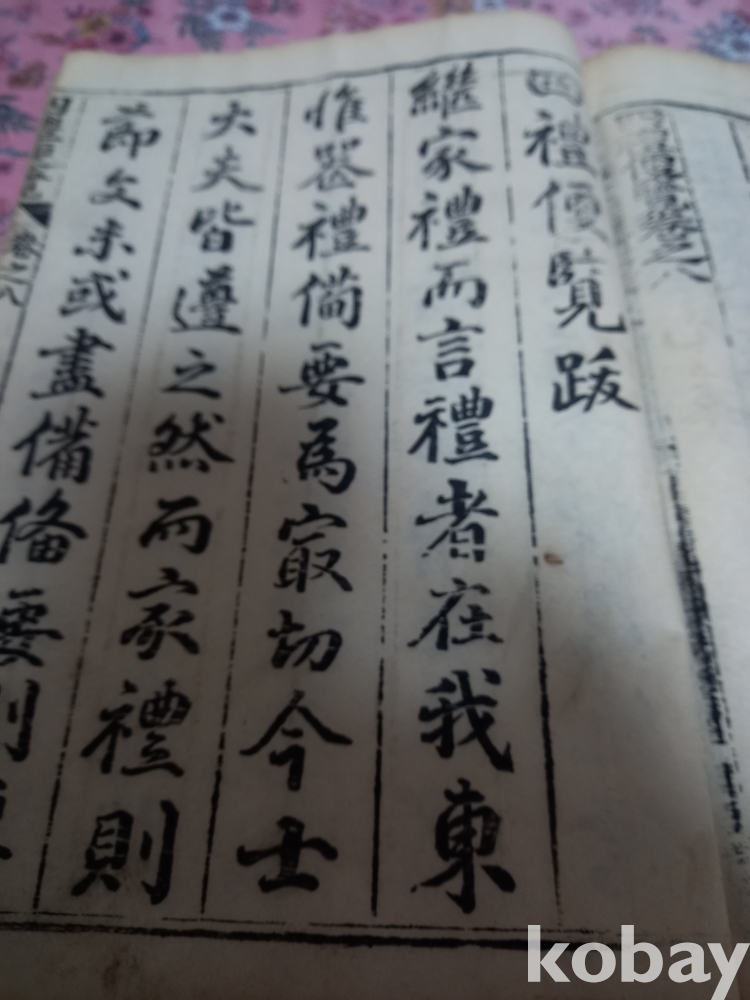 四禮便覽卷之八
四禮便覽跋
繼家禮而言禮者在我東
惟喪禮備要為㝡切今士
大夫皆遵之然而家禮則
節文未或盡備備要則
四禮便覽 卷之八
kobay